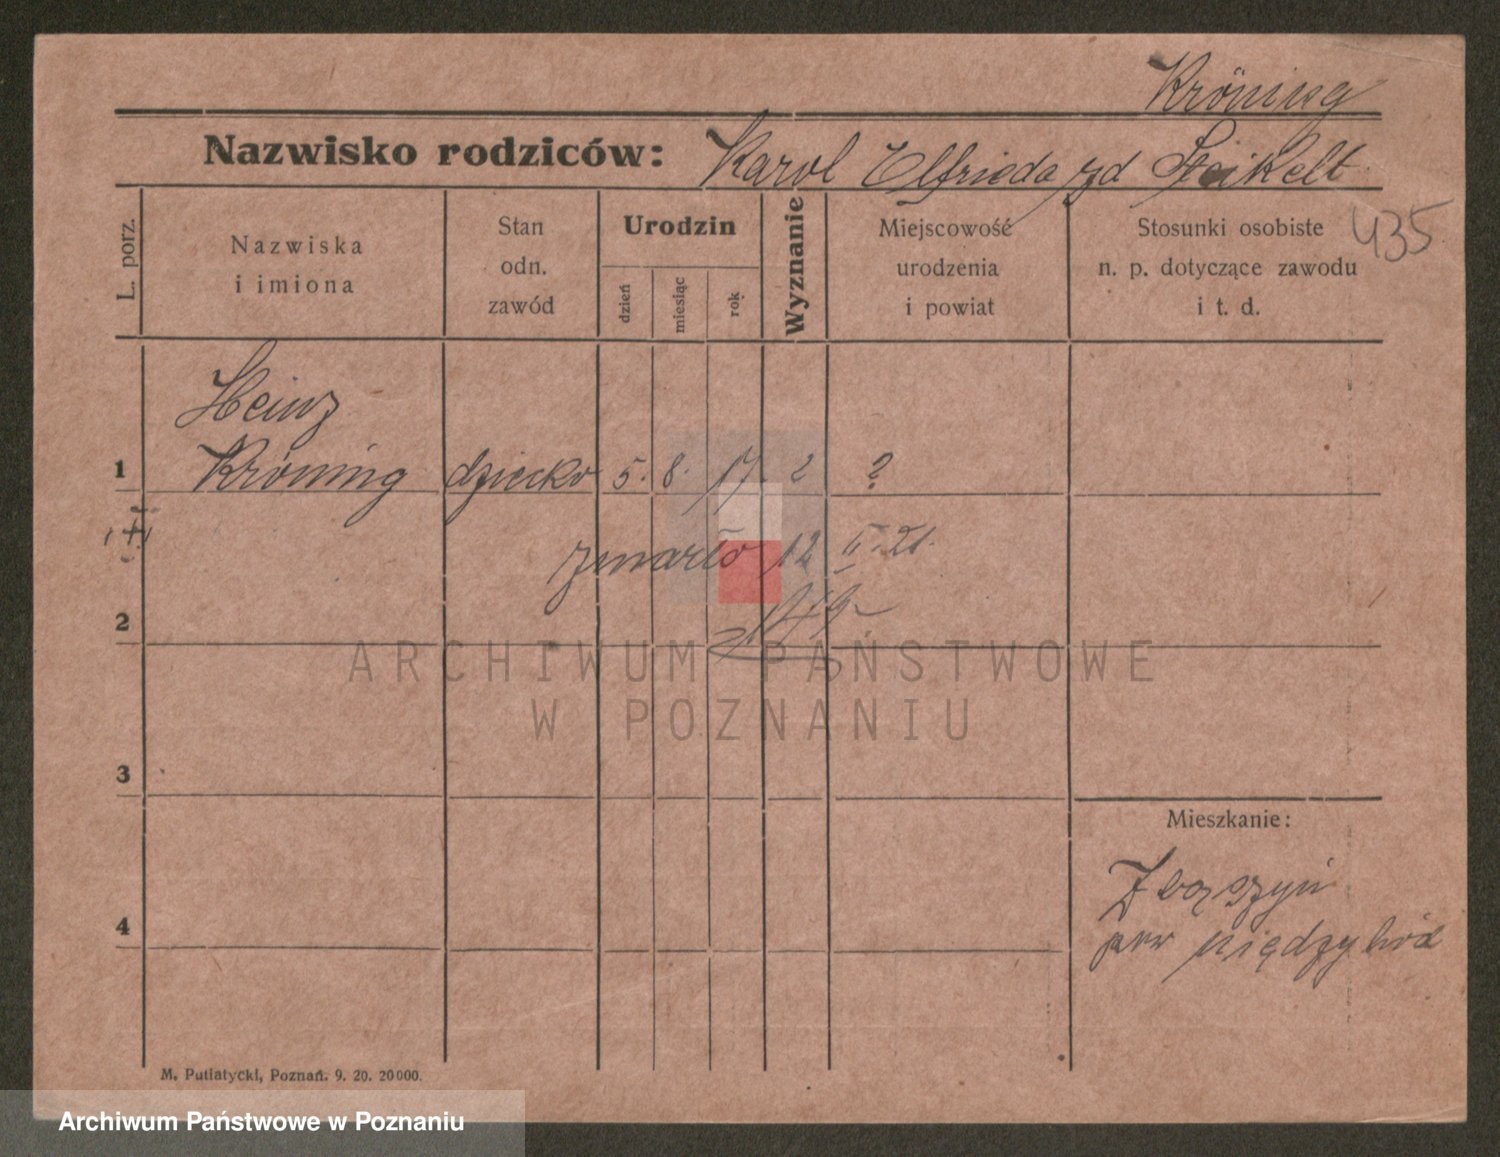 Kröning
Nazwisko rodziców: Karol Elfrieda zd Steikelt
435
L. porz.
Nazwiska
i imiona
Stan
odn.
zawód
Urodzin
dzień
miesiąc
rok
Wyznanie
Miejscowość
urodzenia
i powiat
Stosunki osobiste
n. p. dotyczące zawodu
i t. d.
Heinz
1 Kröning dziecko 5. 8. 17. 2 ?
zmarło 12 II. 21.
2
ARCHIWUM PAŃSTWOWE
W POZNANIU
3
Mieszkanie:
Zbąszyń
pow międzychód
4
M. Putiatycki, Poznań. 9. 20. 20000.
Archiwum Państwowe w Poznaniu